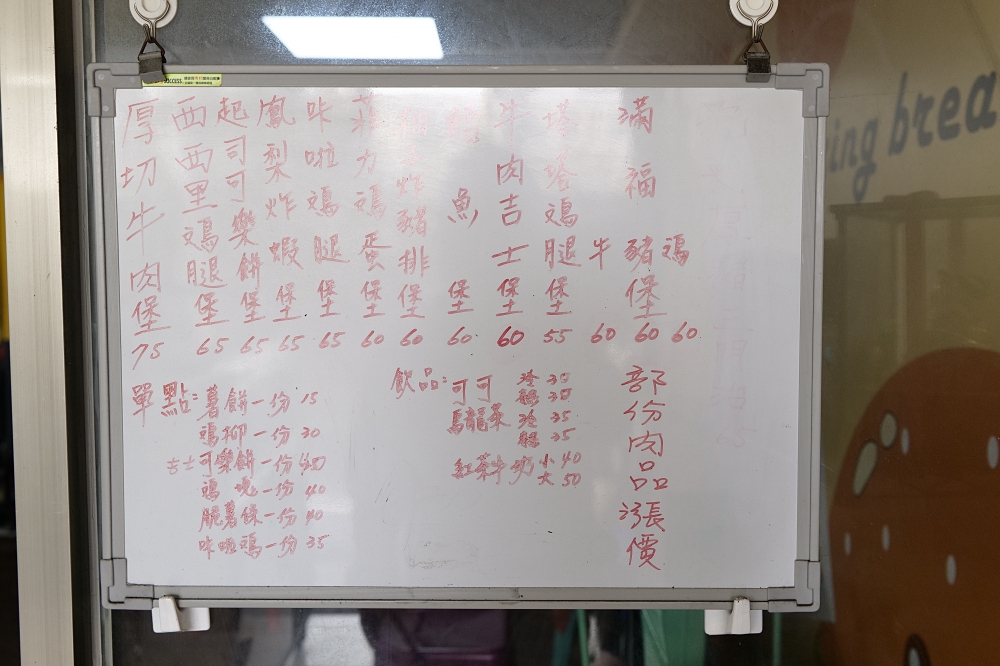 厚切牛肉堡 75
西西里鷄腿堡 65
起司可樂餅堡 65
鳳梨炸蝦堡 65
咔啦鷄腿堡 65
力鷄蛋堡 60
炸豬排堡 60
魚堡 60
牛肉吉士堡 60
塔塔鷄腿堡 55
滿福堡
牛 豬 鷄
60 60 60
單點:薯餅一份 15
鷄柳一份 30
吉士可樂餅一份
鷄塊一份 40
脆薯條一份 40
咔啦鷄一份 35
飲品:可可 冷 35
熱 35
烏龍茶 冷 35
熱 35
紅茶牛奶 小 40
大 50
部份肉品漲價
ing brea